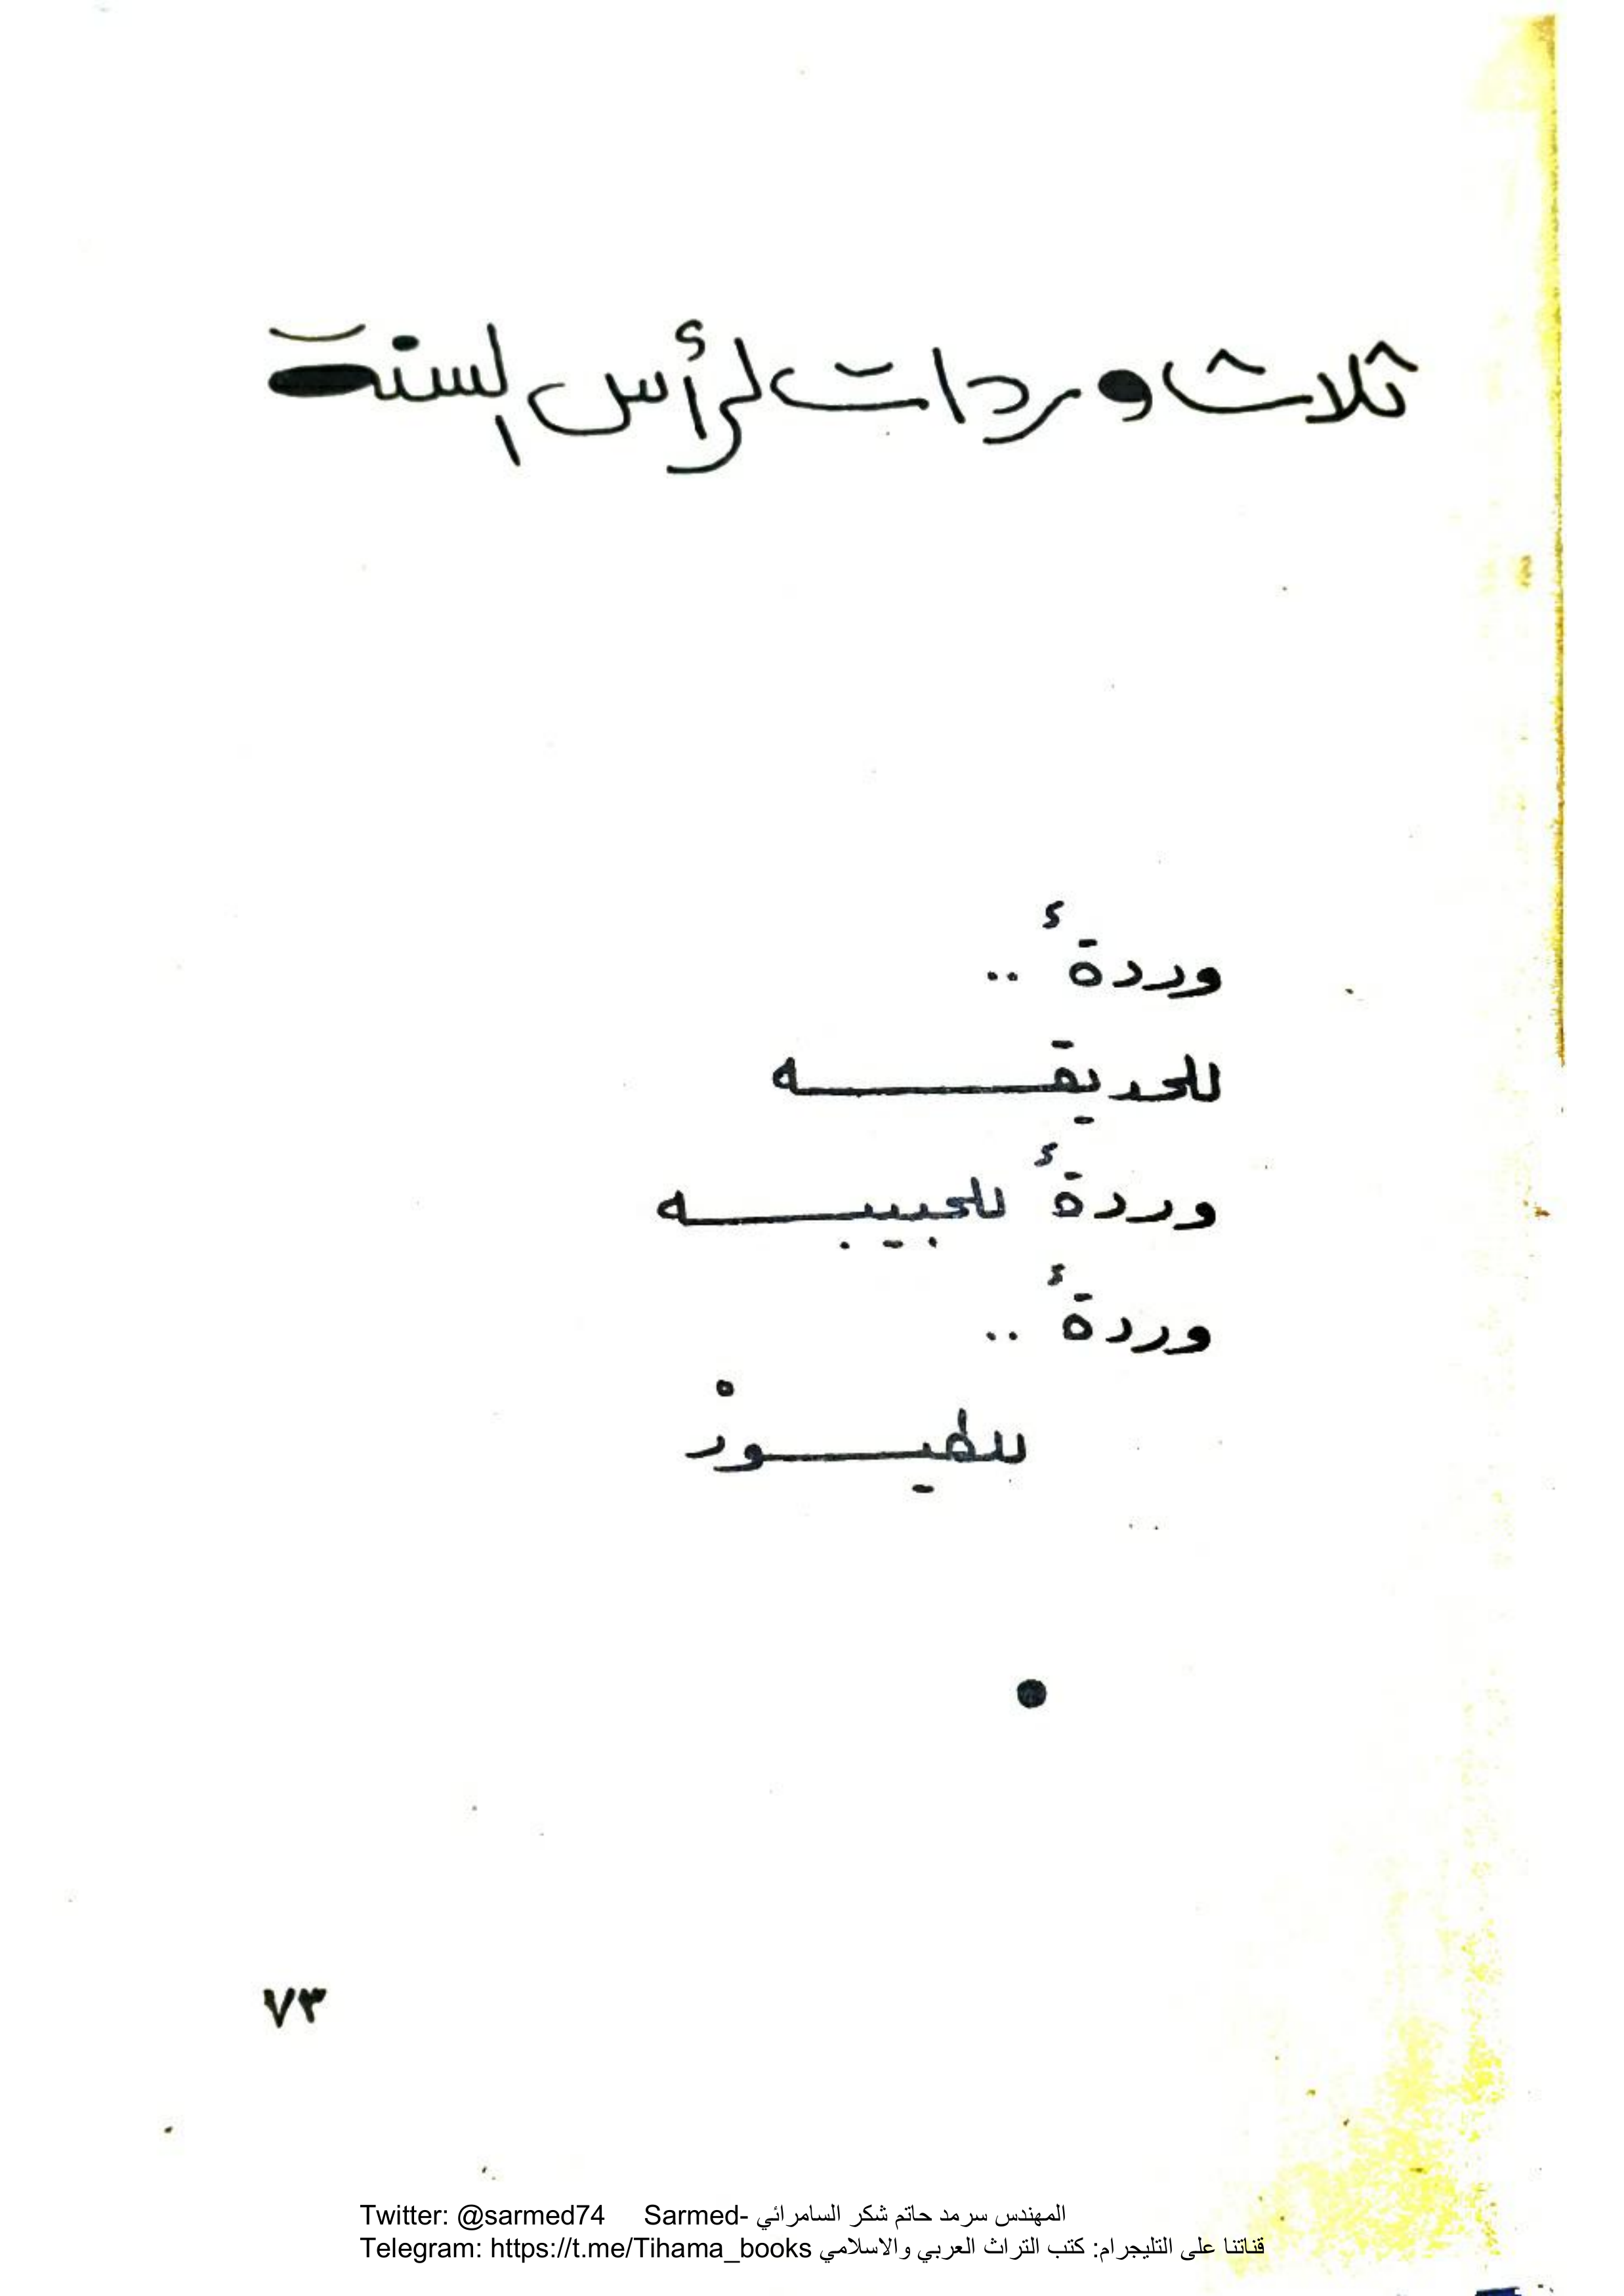 ثلاث وردات لرأس السنة
وردةٌ ..
للحديقـــــــه
وردةٌ للحبيبـــــــه
وردةٌ ..
للطيـــــورْ
●
٧٣
Twitter: @sarmed74 Sarmed- المهندس سرمد حاتم شكر السامرائي
Telegram: https://t.me/Tihama_books قناتنا على التليجرام: كتب التراث العربي والاسلامي